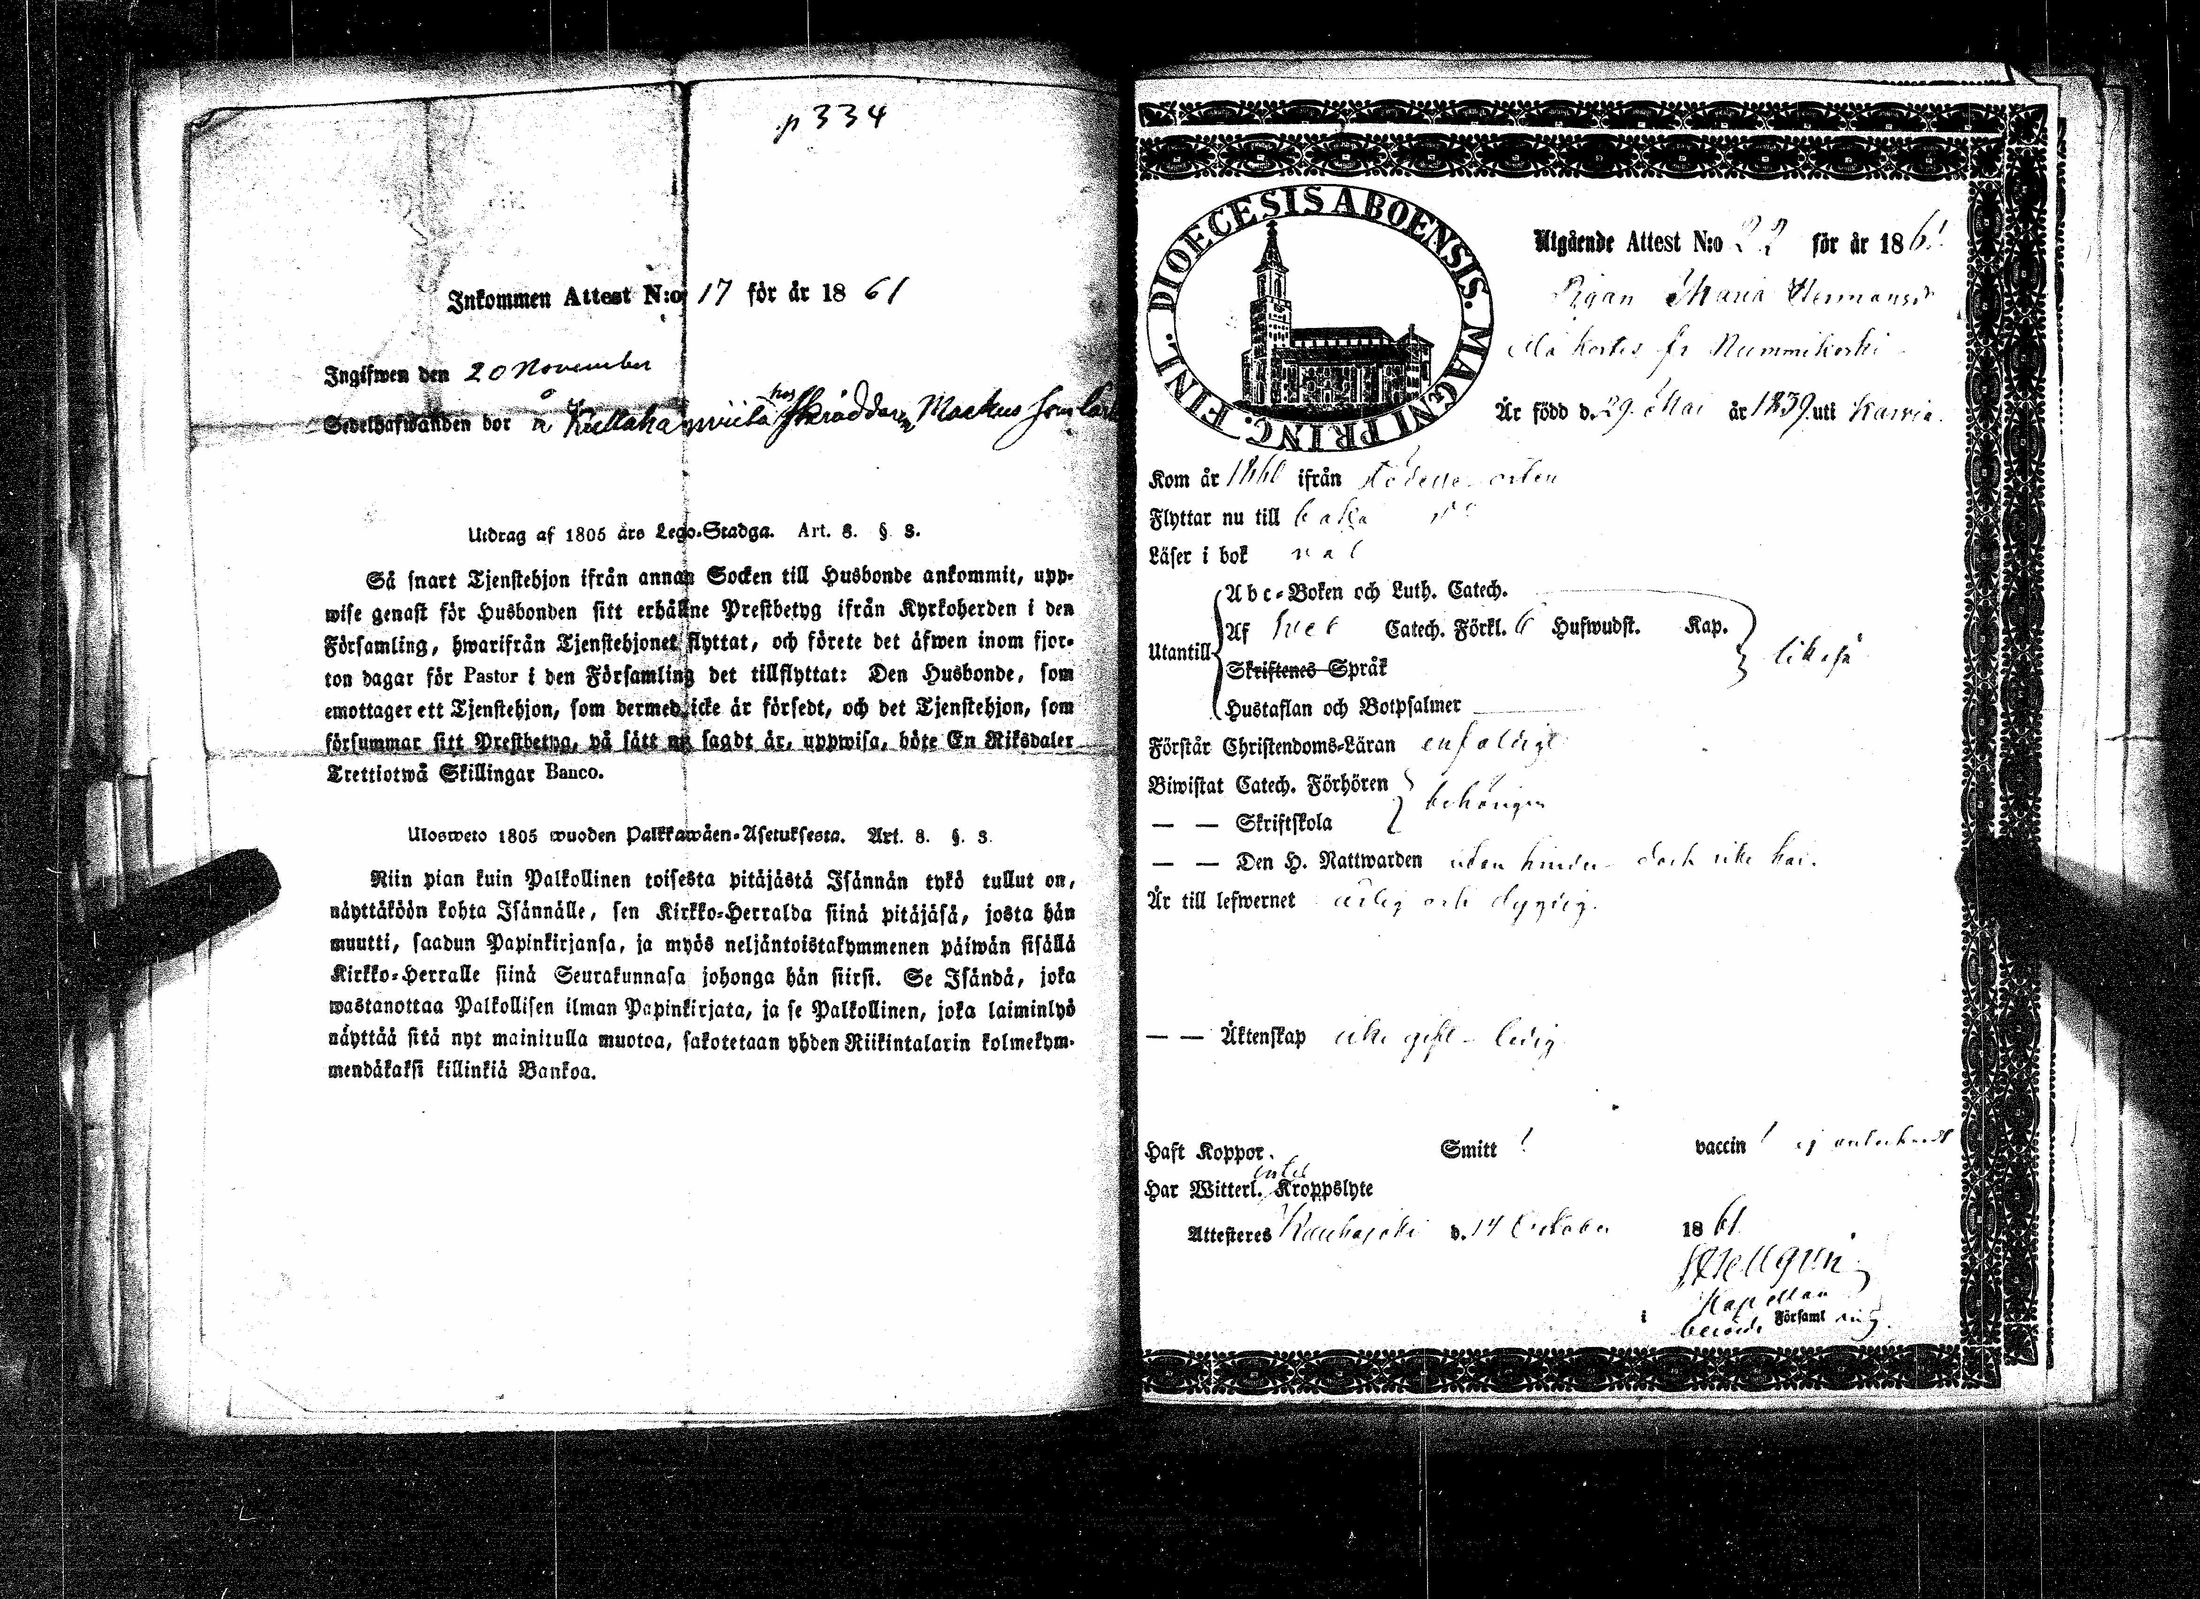 p 334
Inkommen Attest N:o 17 för år 18 61
Ingifwen den 20 November
Sedelhafwanden bor å Kullaha hos Skräddaren Markus
Utdrag af 1805 års Lego-Stadga. Art. 8. § 3.
Så snart Tjenstehjon ifrån annan Socken till Husbonde ankommit, upp-
wise genast för Husbonden sitt erhållne Prestbetyg ifrån Kyrkoherden i den
Församling, hwarifrån Tjenstehjonet flyttat, och förete det äfwen inom fjor-
ton dagar för Pastor i den Församling det tillflyttat: Den Husbonde, som
emottager ett Tjenstehjon, som dermed icke är försedt, och det Tjenstehjon, som
försummar sitt Prestbetyg, på sätt nu sagdt är, uppwisa, böte En Riksdaler
Trettiotwå Skillingar Banco.
Ulosweto 1805 wuoden Palkkawäen-Asetuksesta. Art. 8. §. 3.
Niin pian kuin Palkollinen toisesta pitäjästä Isännän tykö tullut on,
näyttäköön kohta Isännälle, sen Kirkko-Herralda siinä pitäjäsä, josta hän
muutti, saadun Papinkirjansa, ja myös neljäntoistakymmenen päiwän sisällä
Kirkko-Herralle siinä Seurakunnasa johonga hän siirsi. Se Isändä, joka
wastanottaa Palkollisen ilman Papinkirjata, ja se Palkollinen, joka laiminlyö
näyttää sitä nyt mainitulla muotoa, sakotetaan yhden Riikintalarin kolmekym-
mendäkaksi killinkiä Bankoa.
DIOECESIS ABOENSIS. MAGNI PRINC. FINL.
Utgående Attest N:o 22 för år 1861
Pigan Maria Hermansd
fr Nummikoski
Är född d. 29 Maj år 1839 uti Karvia.
Kom år 1860 ifrån födelseorten
Flyttar nu till
Läser i bok väl
Utantill
Abc-Boken och Luth. Catech.
Af Sveb Catech. Förkl. 6 Hufwudst. Kap.
likaså
Skriftenes Språk
Hustaflan och Botpsalmer
Förstår Christendoms-Läran enfaldigt
Biwistat Catech. Förhören
behörigen
— — Skriftskola
— — Den H. Nattwarden utan hinder
Är till lefwernet ärlig och dygdig.
— — Äktenskap icke gift - ledig
Haft Koppor. Smitt vaccin ej antecknadt
Har Witterl. intet Kroppslyte
Attesteres Kauhajoki d. 14 October 1861
Hellgren
Kapellan
i berörde Församling.